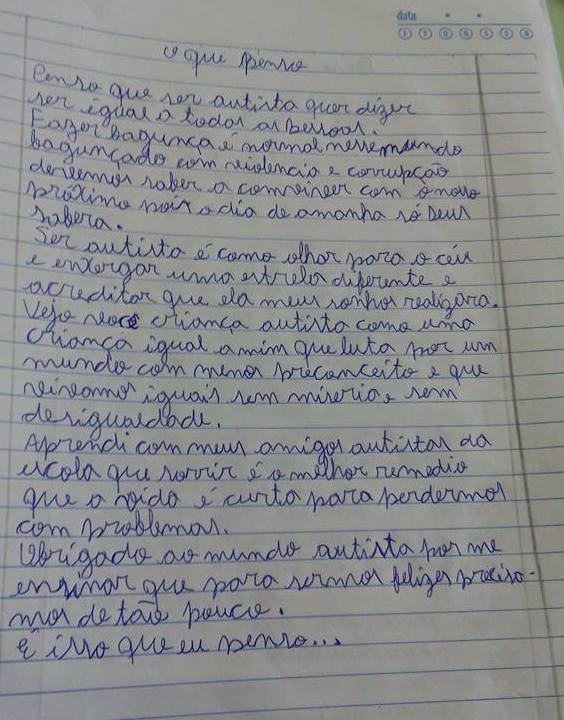 data
O que Penso
Penso que ser autista quer dizer
ser igual a todas as pessoas.
Fazer bagunça é normal nesse mundo
bagunçado com violencia e corrupção
devemos saber a conviver com o nosso
próximo pois o dia de amanha só Deus
sabera.
Ser autista é como olhar para o céu
e enxergar uma estrela diferente e
acreditar que ela meus sonhos realizara.
Vejo você criança autista como uma
criança igual a mim que luta por um
mundo com menos preconceito e que
vivamos iguais sem miseria e sem
desigualdade.
Aprendi com meus amigos autistas da
escola que sorrir é o melhor remedio
que a vida é curta para perdermos
com problemas.
Obrigado ao mundo autista por me
ensinar que para sermos felizes preciso-
mos de tão pouco.
É isso que eu penso...